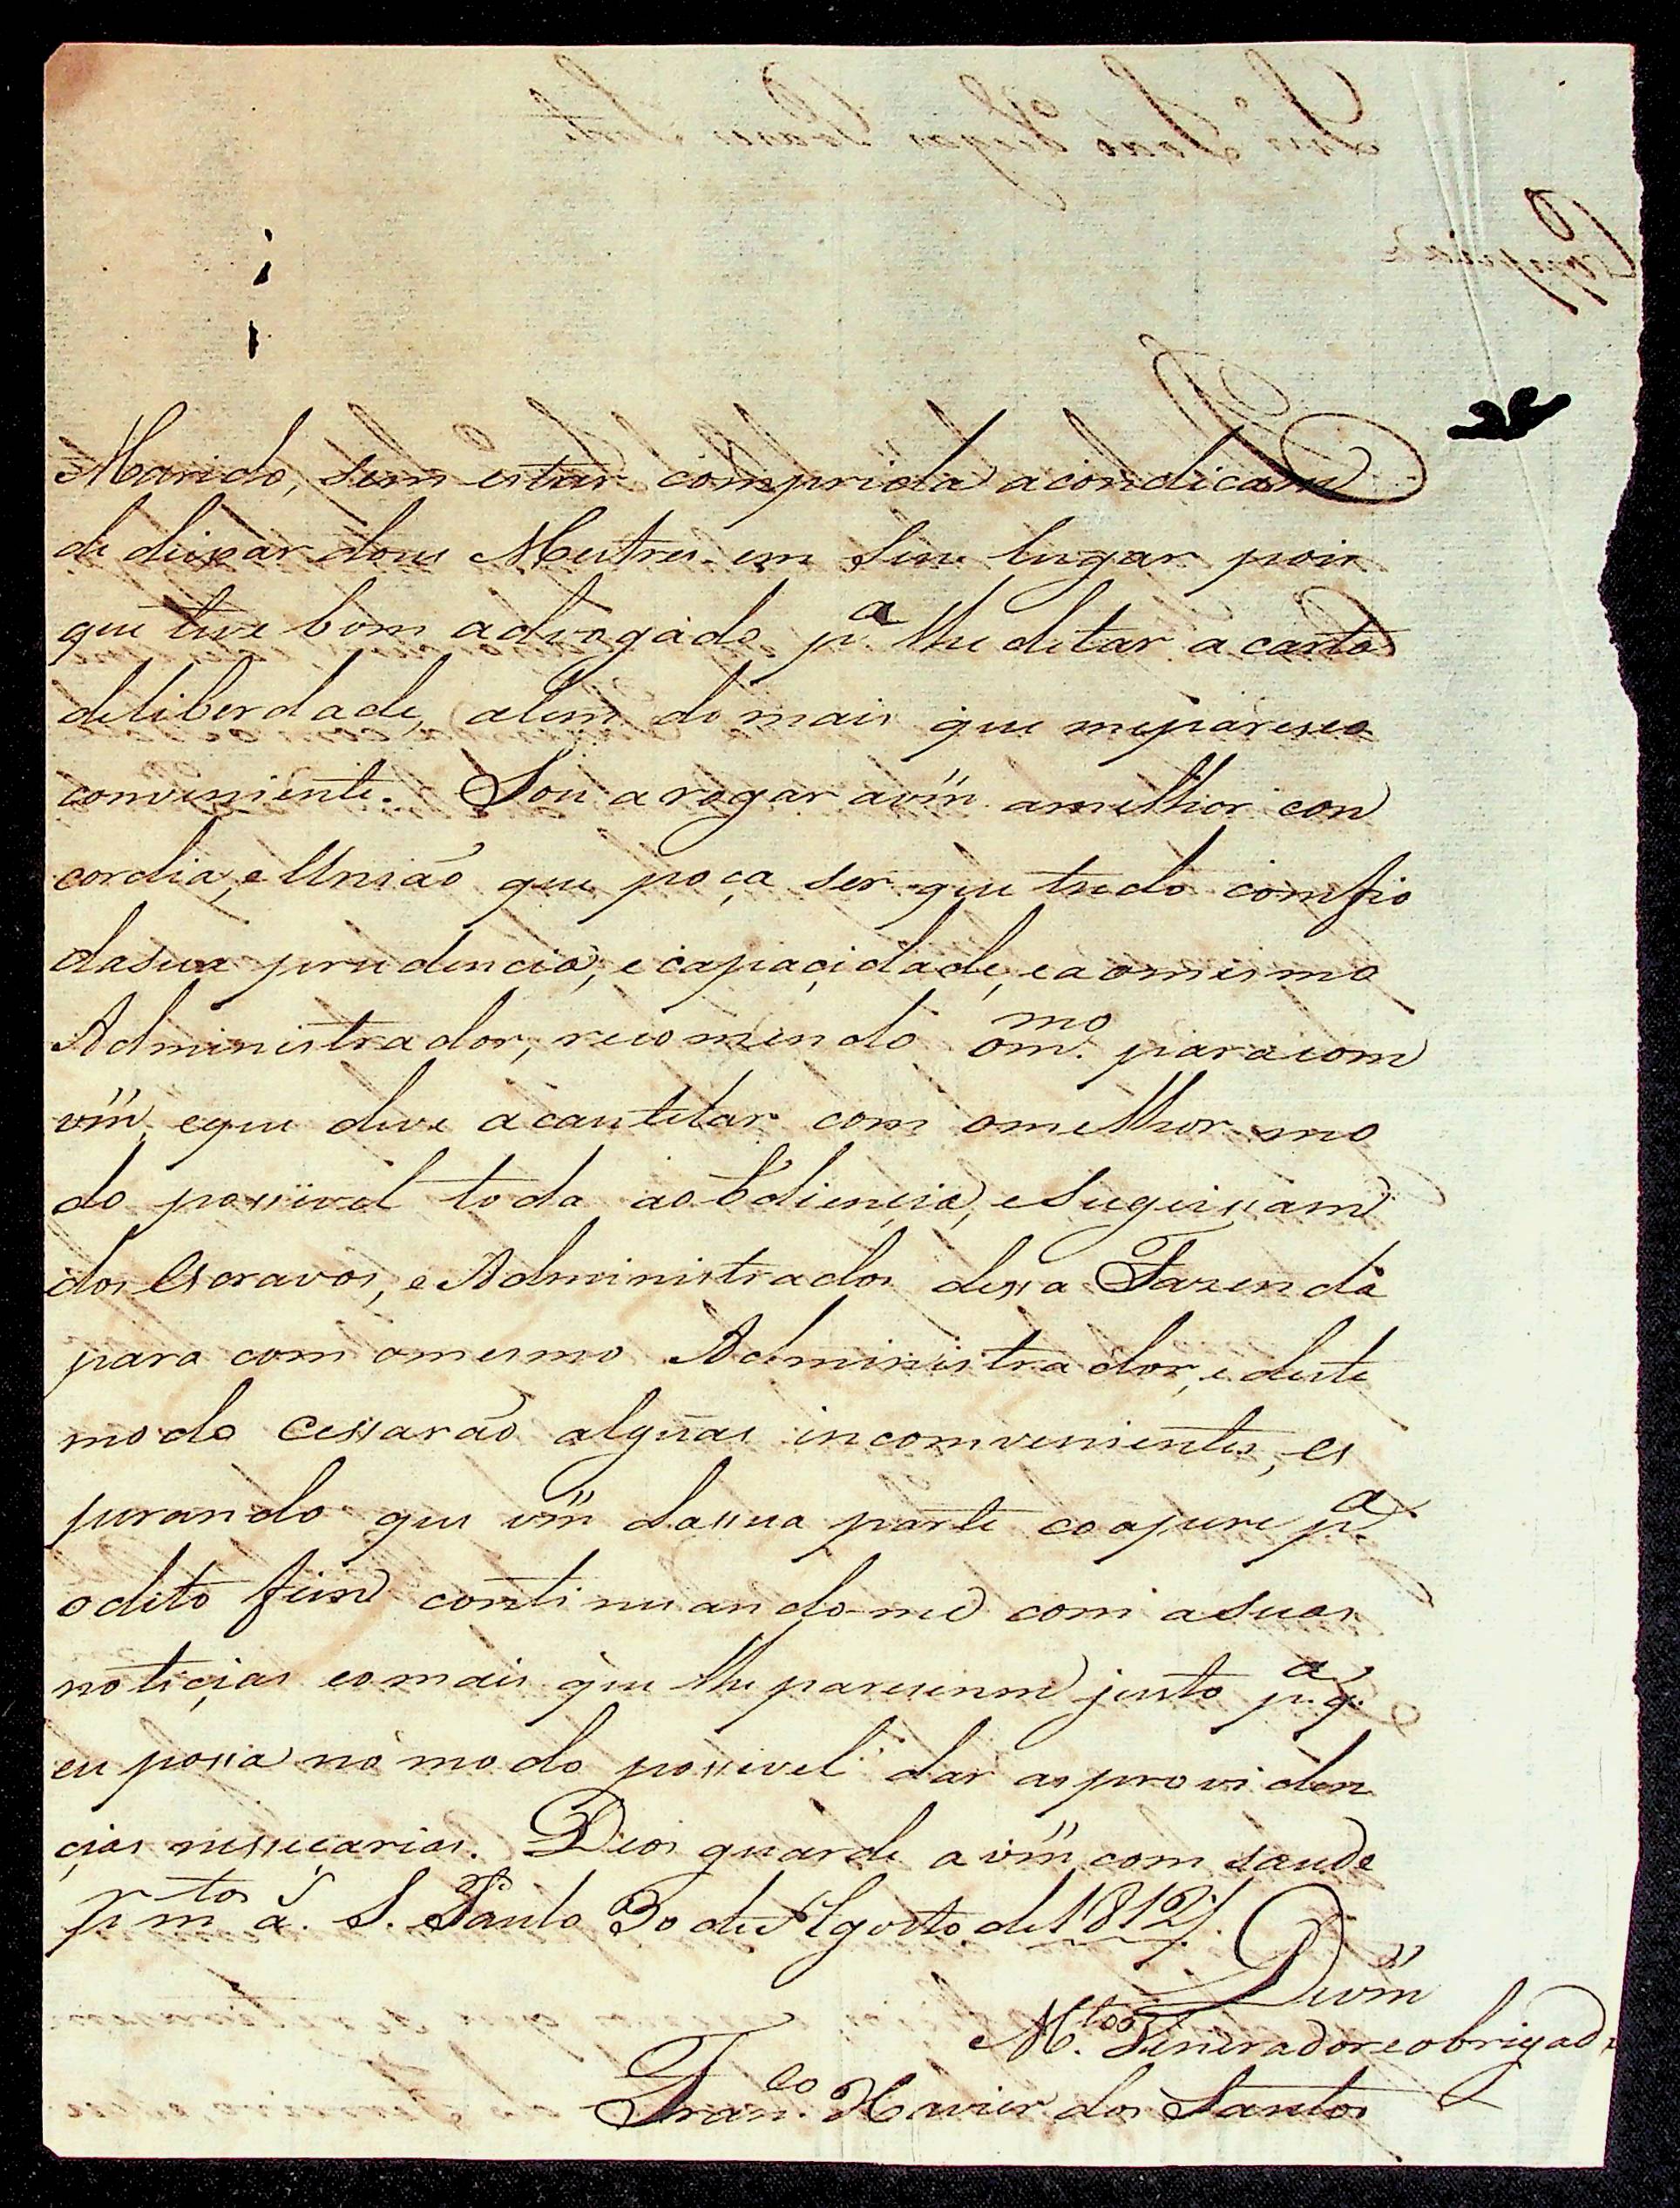 Marido, sem estar comprida acondicam
de deixar dous Mestres em seu lugar pois
que teve bom advogado p.ª lhe ditar a carta
deliberdade, alem do mais que mepareseo
conveniente. Sou a rogar avm̃ amelhor con
cordia, e União que poça ser que tudo comfio
dasua prudencia, e capaçidade, eaomesmo
Administrador, recomendo om.mo paracom
vm̃, eque deve acautelar com omelhor mo
do possivel toda aobdiençia, esugeissam
dos Escravos, e Administrados dessa Fazenda
para com omesmo Administrador, e deste
modo cessarão algũas incomvenientes, es
perando que vm̃ dassua parte coopere p.ª
odito fim continuando-me com asuas
notiçias eomais que lhe pareserem justo p.ª q.
eu possa no modo possivel dar asproviden
çias nessecarias. Deos guarde a vm̃ com saude
p.r m.tos a.s S. Paulo 30 de Agosto de 1812
Devm̃
M.to Venerador eobrigad
Fran.co Xavier dos Santos